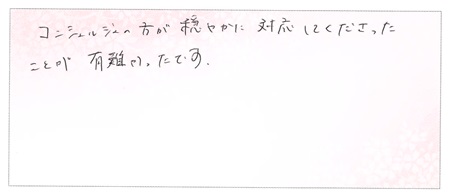 コンシェルジュの方が穏やかに対応してくださった
ことが有難かったです。